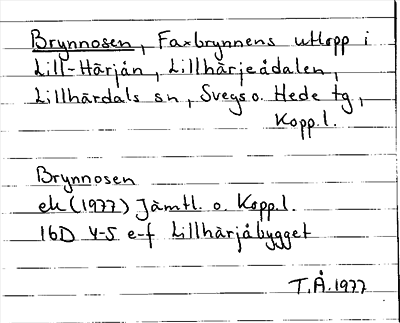 Brynnosen, Faxbrynnens utlopp i
Lill-Härjån, Lillhärjeådalen,
Lillhärdals sn, Svegs o. Hede tg,
Kopp.l.
Brynnosen
ek (1977) Jämtl. o. Kopp.l.
16D 4-5 e-f Lillhärjåbygget
T.Å.1977